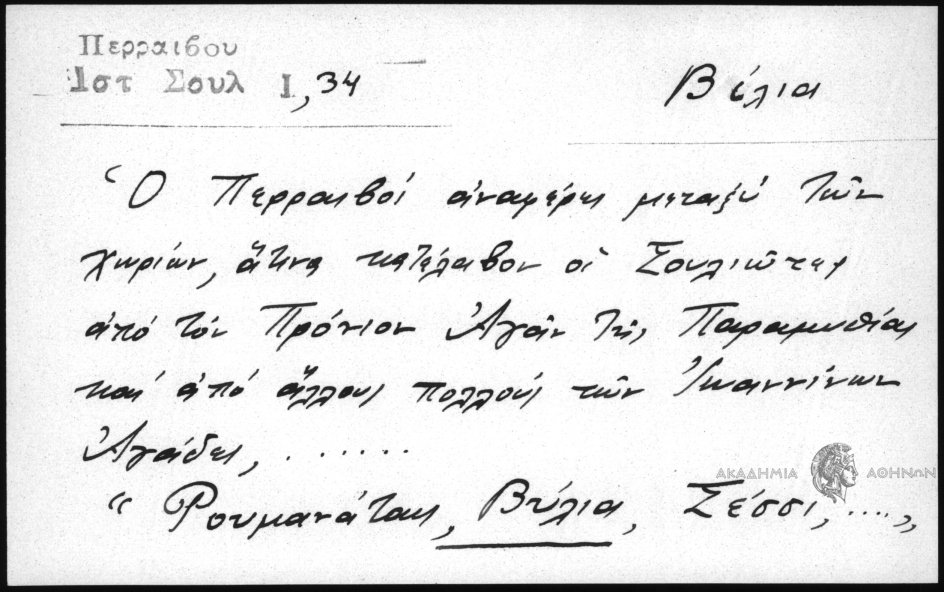 Περραιβου
Ιστ Σουλ Ι, 34
Βίλια
Ὁ Περραιβός ἀναφέρει μεταξύ τῶν
χωρίων, ἅτινα κατέλαβον οἱ Σουλιῶτες
ἀπό τόν Πρόνιον Ἀγᾶν τῆς Παραμυθίας
καί ἀπό ἄλλους πολλούς τῶν Ἰωαννίνων
Ἀγάδες, .......
ΑΚΑΔΗΜΙΑ ΑΘΗΝΩΝ
“Ρουμανάταις, Βύλια, Σέσσι, ....,,